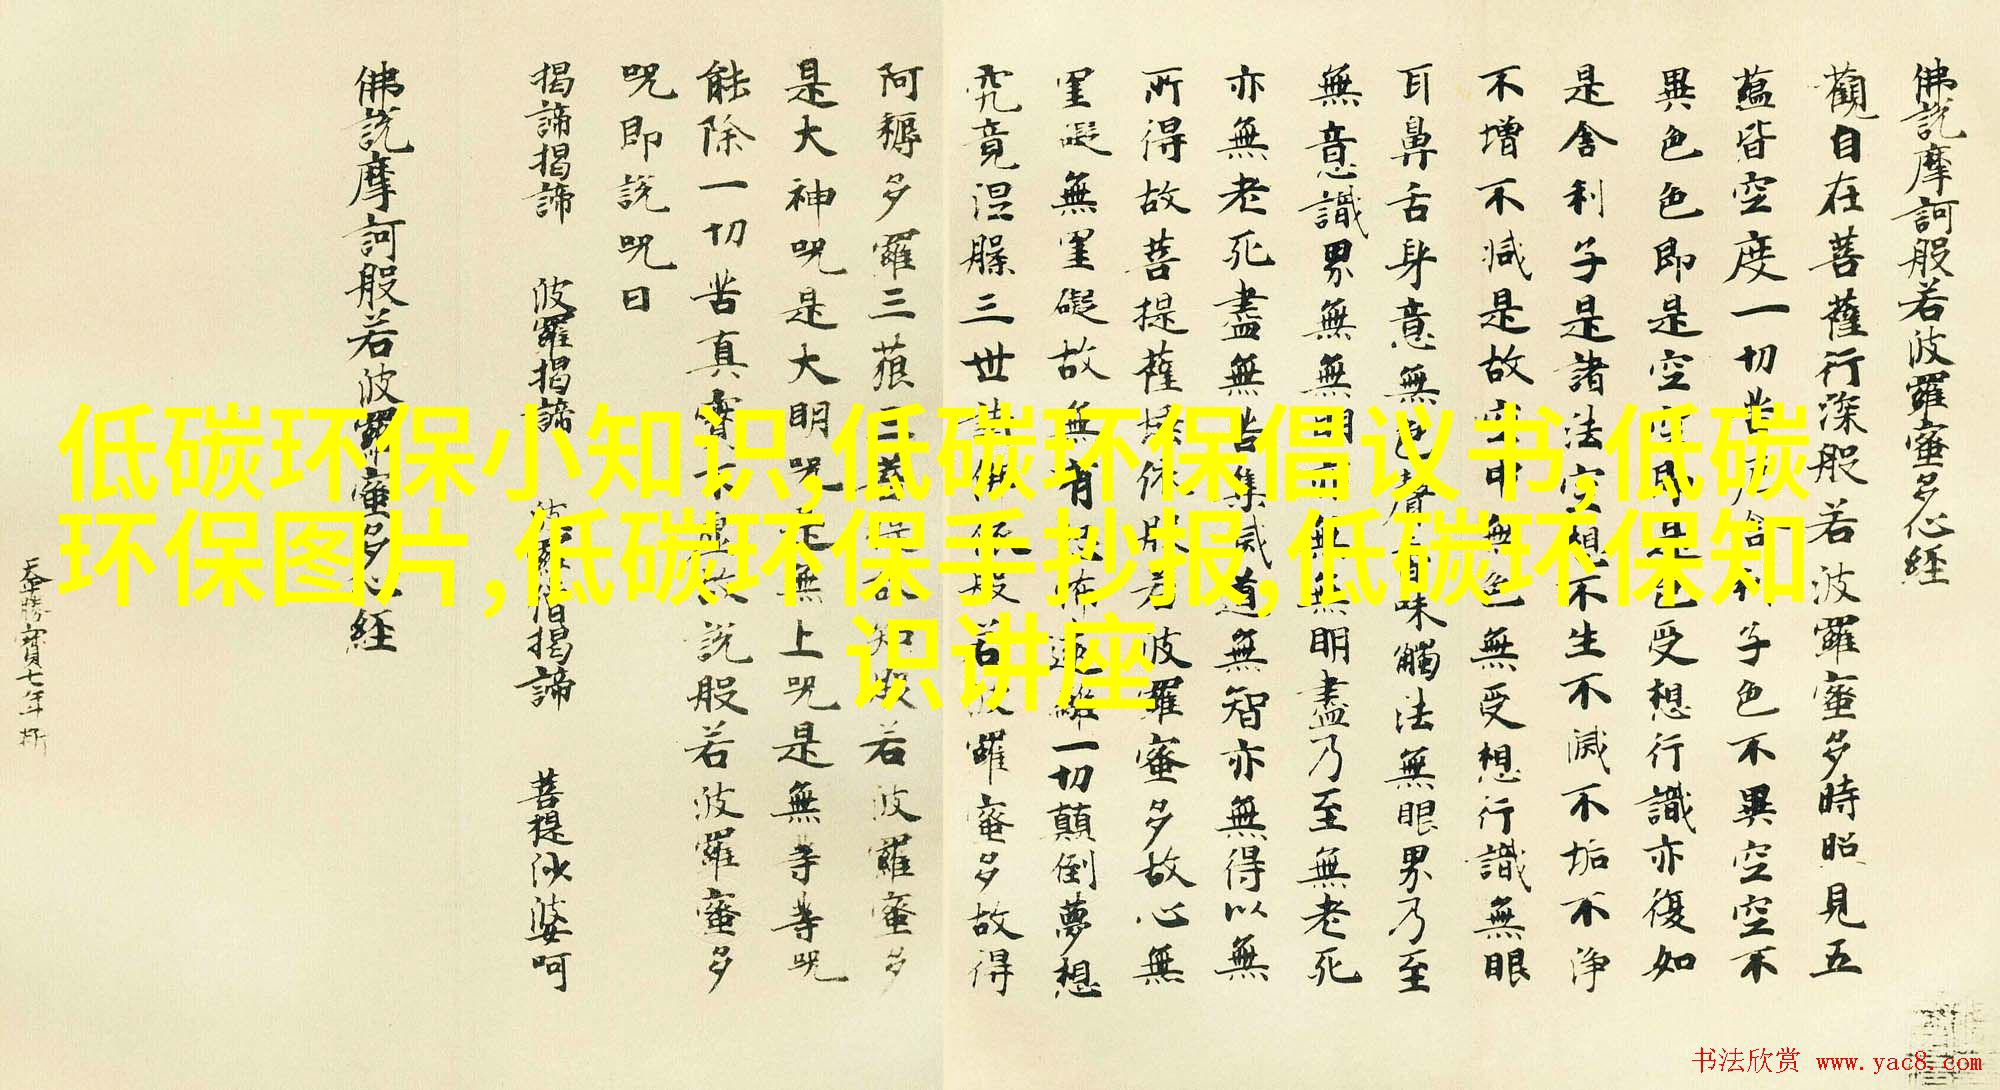 佛說摩訶般若波羅蜜多心経
觀自在菩薩行深般若波羅蜜多時照見五
蘊皆空度一切苦厄舍利子色不異空空不
異色色即是空空即是色受想行識亦復如
是舍利子是諸法空想不生不滅不垢不淨
不增不減是故空中無色無受想行識無眼
耳鼻舌身意無色聲香味觸法無眼界乃至
無意識界無無明亦無無明盡乃至無老死
亦無老死盡無苦集滅道無智亦無得以無
所得故菩提薩埵依般若波羅蜜多故心無
罣礙無罣礙故無有恐怖遠離一切顛倒夢想
究竟涅槃三世諸佛依般若波羅蜜多故得
阿耨多羅三藐三菩提故知般若波羅蜜多
是大神咒是大明咒是無上咒是無等等咒
能除一切苦真實不虛故說般若波羅蜜多
咒即說咒曰
揭諦揭諦 波羅揭諦 波羅僧揭諦 菩提沙婆呵
佛說摩訶般若波羅蜜多心経
天平勝寶七年
低碳环保小知识,低碳环保倡议书,低碳
环保图片,低碳环保手抄报,低碳环保知
识讲座
书法欣赏 www.yac8.com